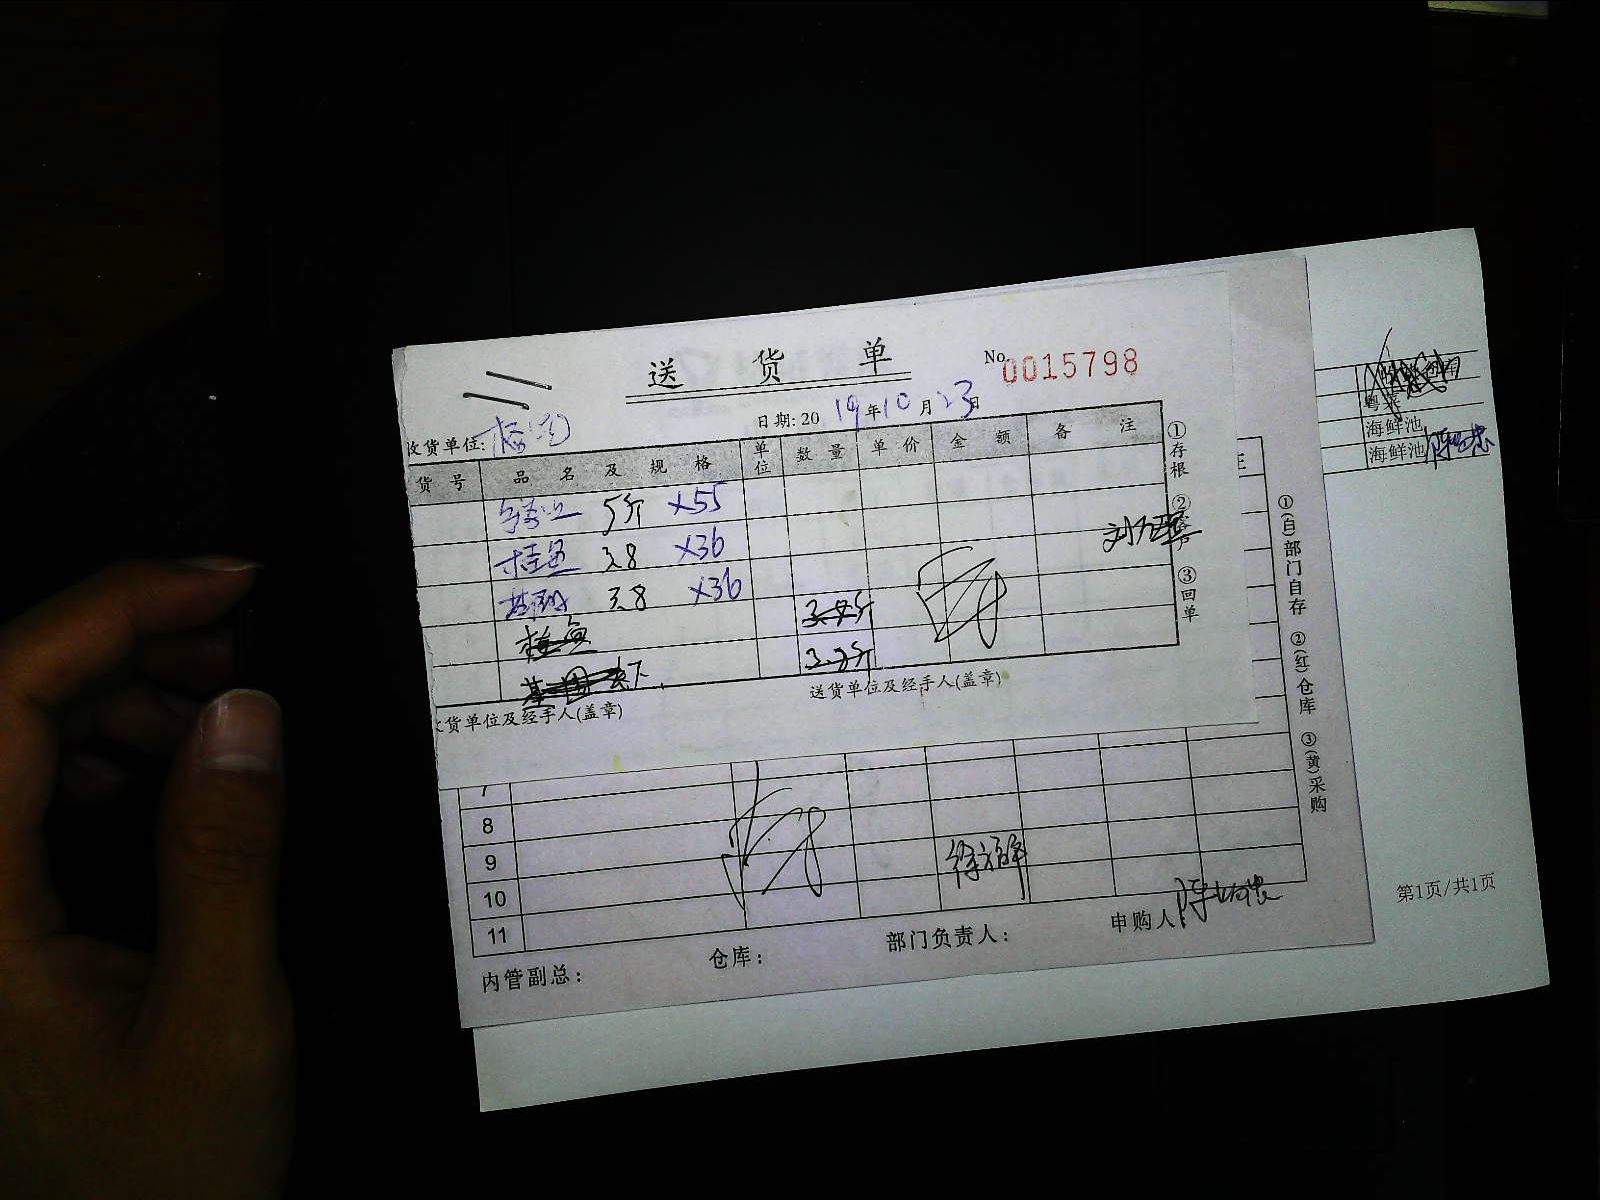 送 货 单
No. 0015798
日期: 20 19 年 10 月 23 日
收货单位:
货 号 品 名 及 规 格 单位 数 量 单 价 金 额 备 注
5斤 X55
桂鱼 3.8 X36
3.8 X36
桂鱼
基围虾 3.8斤
收货单位及经手人(盖章) 送货单位及经手人(盖章)
①存根 ②客户 ③回单
7
8
9
10
11
内管副总: 仓库: 部门负责人: 申购人:
①(白)部门自存 ②(红)仓库 ③(黄)采购
粤菜
海鲜池
海鲜池
第1页/共1页